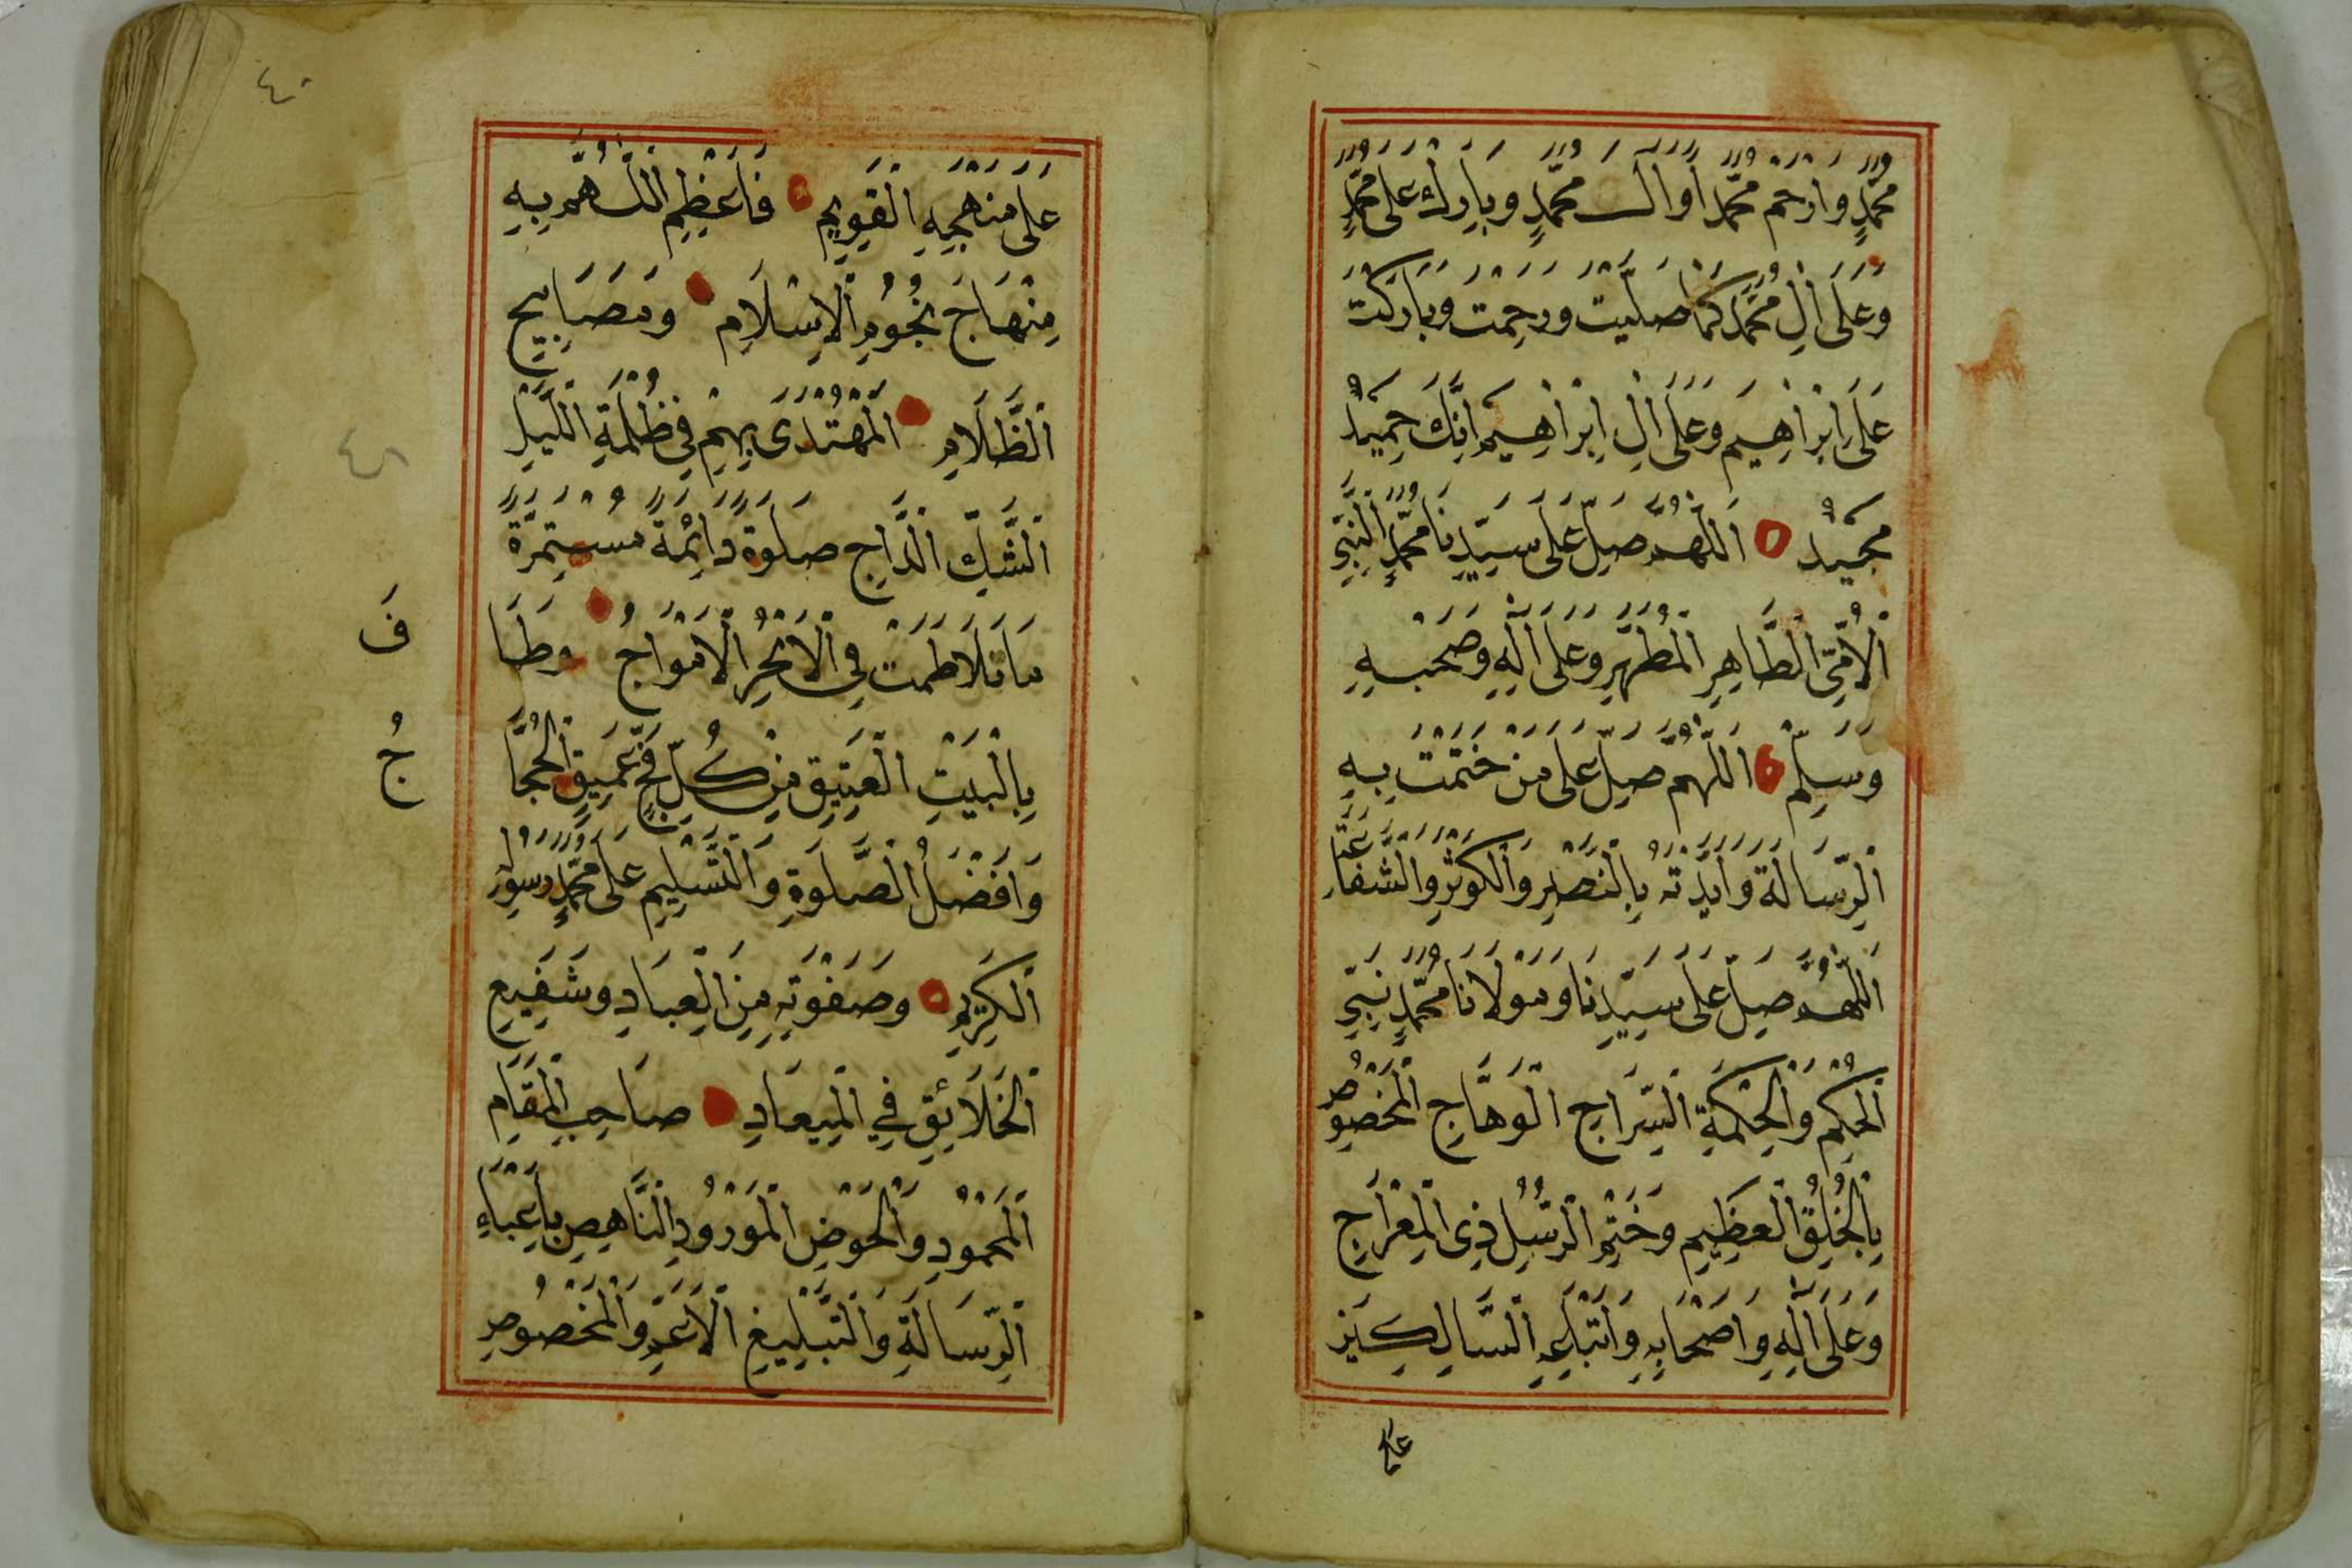 مُحَمَّدٍ وَارْحَمْ مُحَمَّدًا وَاٰلَ مُحَمَّدٍ وَبَارِكْ عَلَى مُحَمَّدٍ
وَعَلَى اٰلِ مُحَمَّدٍ كَمَا صَلَّيْتَ وَرَحِمْتَ وَبَارَكْتَ
عَلَى اِبْرَاهِيمَ وَعَلَى اٰلِ اِبْرَاهِيمَ اِنَّكَ حَمِيدٌ
مَجِيدٌ اَللّٰهُمَّ صَلِّ عَلَى سَيِّدِنَا مُحَمَّدٍ النَّبِيِّ
الْاُمِّيِّ الطَّاهِرِ الْمُطَهَّرِ وَعَلَى اٰلِهِ وَصَحْبِهِ
وَسَلِّمْ اَللّٰهُمَّ صَلِّ عَلَى مَنْ خَتَمْتَ بِهِ
الرِّسَالَةَ وَاَيَّدْتَهُ بِالنَّصْرِ وَالْكَوْثَرِ وَالشَّفَاعَةِ
اَللّٰهُمَّ صَلِّ عَلَى سَيِّدِنَا وَمَوْلَانَا مُحَمَّدٍ نَبِيِّ
الْحُكْمِ وَالْحِكْمَةِ السِّرَاجِ الْوَهَّاجِ الْمَخْصُوصِ
بِالْخُلُقِ الْعَظِيمِ وَخَتْمِ الرُّسُلِ ذِي الْمِعْرَاجِ
وَعَلَى اٰلِهِ وَاَصْحَابِهِ وَاَتْبَاعِهِ السَّالِكِينَ
على
٤٠
عَلَى مَنْهَجِهِ الْقَوِيمِ فَاَعْظِمِ اللّٰهُمَّ بِهِ
مِنْهَاجَ نُجُومِ الْاِسْلَامِ وَمَصَابِيحِ
الظَّلَامِ الْمُهْتَدَى بِهِمْ فِي ظُلْمَةِ اللَّيْلِ
الشَّكِّ الدَّاجِ صَلٰوةً دَائِمَةً مُسْتَمِرَّةً
مَا تَلَاطَمَتْ فِي الْاَبْحُرِ الْاَمْوَاجُ وَطَافَ
بِالْبَيْتِ الْعَتِيقِ مِنْ كُلِّ فَجٍّ عَمِيقٍ الْحُجَّاجُ
وَاَفْضَلُ الصَّلٰوةِ وَالتَّسْلِيمِ عَلَى مُحَمَّدٍ رَسُولِهِ
الْكَرِيمِ وَصَفْوَتِهِ مِنَ الْعِبَادِ وَشَفِيعِ
الْخَلَائِقِ فِي الْمِيعَادِ صَاحِبِ الْمَقَامِ
الْمَحْمُودِ وَالْحَوْضِ الْمَوْرُودِ النَّاهِضِ بِاَعْبَاءِ
الرِّسَالَةِ وَالتَّبْلِيغِ الْاَعَمِّ وَالْمَخْصُوصِ